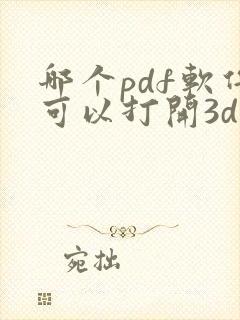 那个pdf軟件
可以打開3d
宛拙